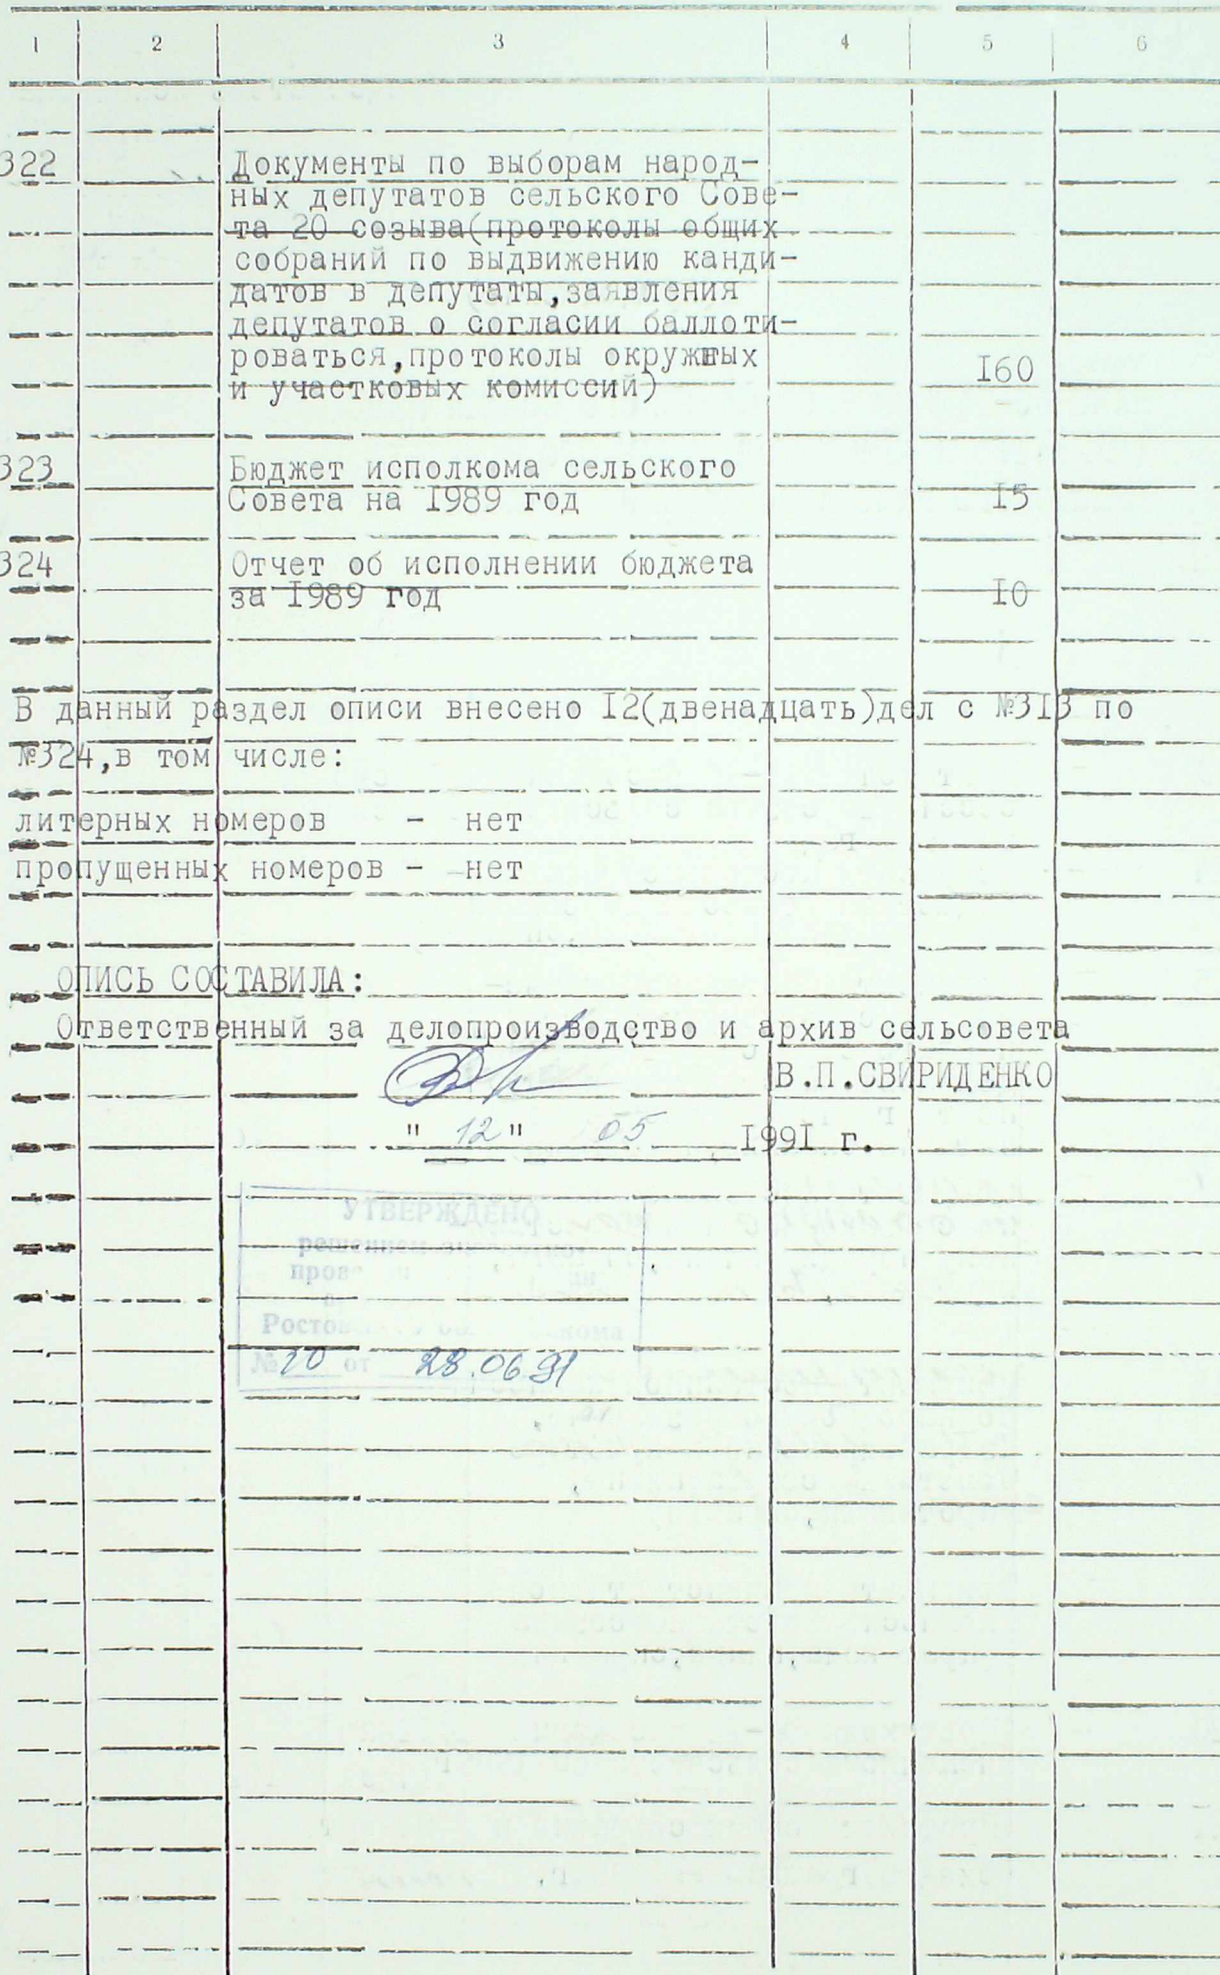 1 2 3 4 5 6
322 Документы по выборам народ-
ных депутатов сельского Сове-
та 20 созыва(протоколы общих
собраний по выдвижению канди-
датов в депутаты,заявления
депутатов о согласии баллоти-
роваться,протоколы окружных
и участковых комиссий) 160
323 Бюджет исполкома сельского
Совета на 1989 год 15
324 Отчет об исполнении бюджета
за 1989 год 10
В данный раздел описи внесено 12(двенадцать)дел с №313 по
№324,в том числе:
литерных номеров - нет
пропущенных номеров - нет
ОПИСЬ СОСТАВИЛА:
Ответственный за делопроизводство и архив сельсовета
В.П.СВИРИДЕНКО
" 12 " 05 1991 г.
УТВЕРЖДЕНО
решением
№ 20 от 28.06.91